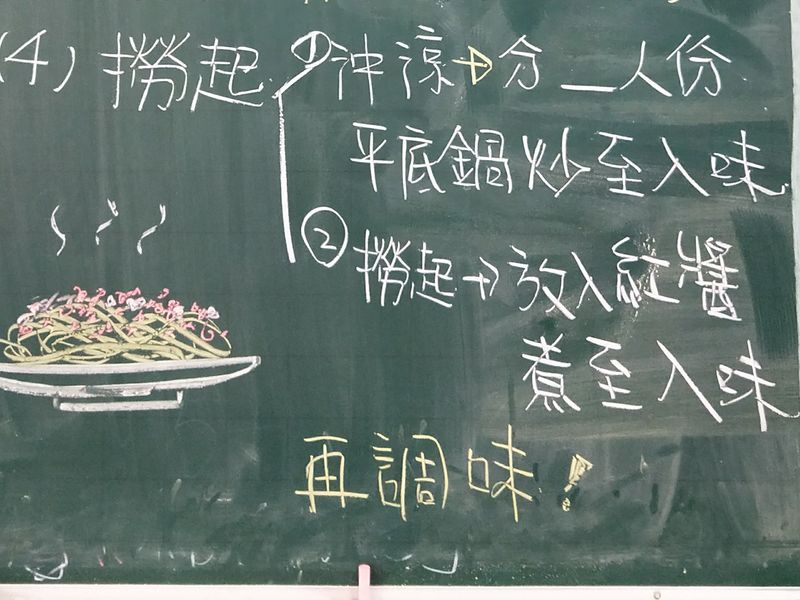 (4) 撈起 ① 沖涼→分__人份
平底鍋炒至入味
② 撈起→放入紅醬
煮至入味
再調味!